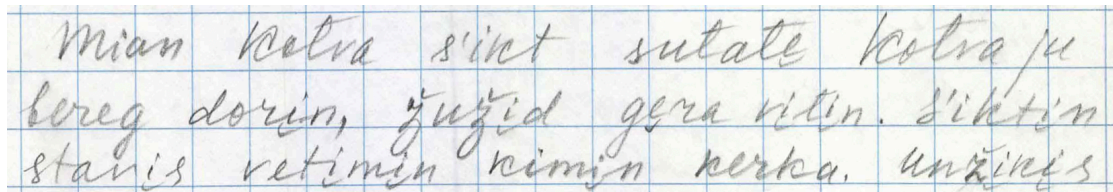 Mian Kolva s'ikt sulalę Kolva ju
bereg dori̮n, žuži̮d gęra vi̮li̮n. S'ikti̮n
stavi̮s veti̮mi̮n ki̮mi̮n kerka. Unži̮ki̮s